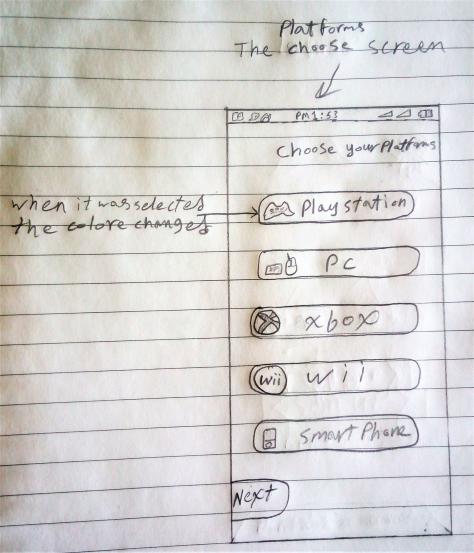 Platforms
The choose screen
PM 1:53
Choose your Platforms
when it was selected
the colore changes
Play station
PC
xbox
wii wii
Smart Phone
Next